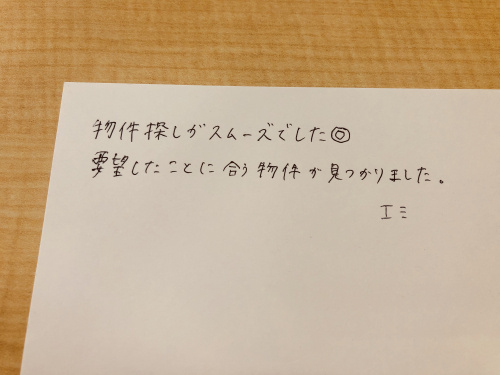 物件探しがスムーズでした◎
要望したことに合う物件が見つかりました。
エミ